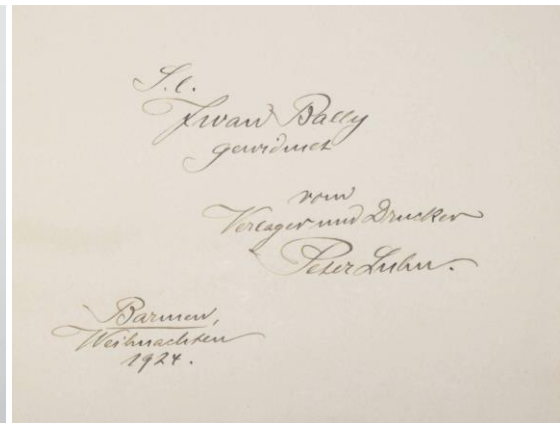 S. l.
Iwan Bally
gewidmet
vom
Verleger und Drucker
Peter Luhn.
Barmen,
Weihnachten
1924.